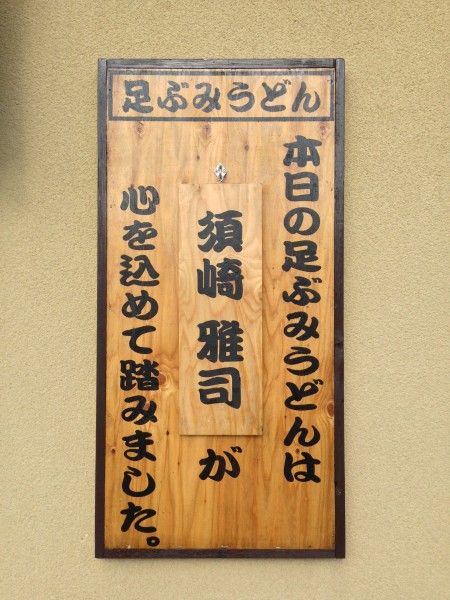 足ぶみうどん
本日の足ぶみうどんは
須崎 雅司
が
心を込めて踏みました。